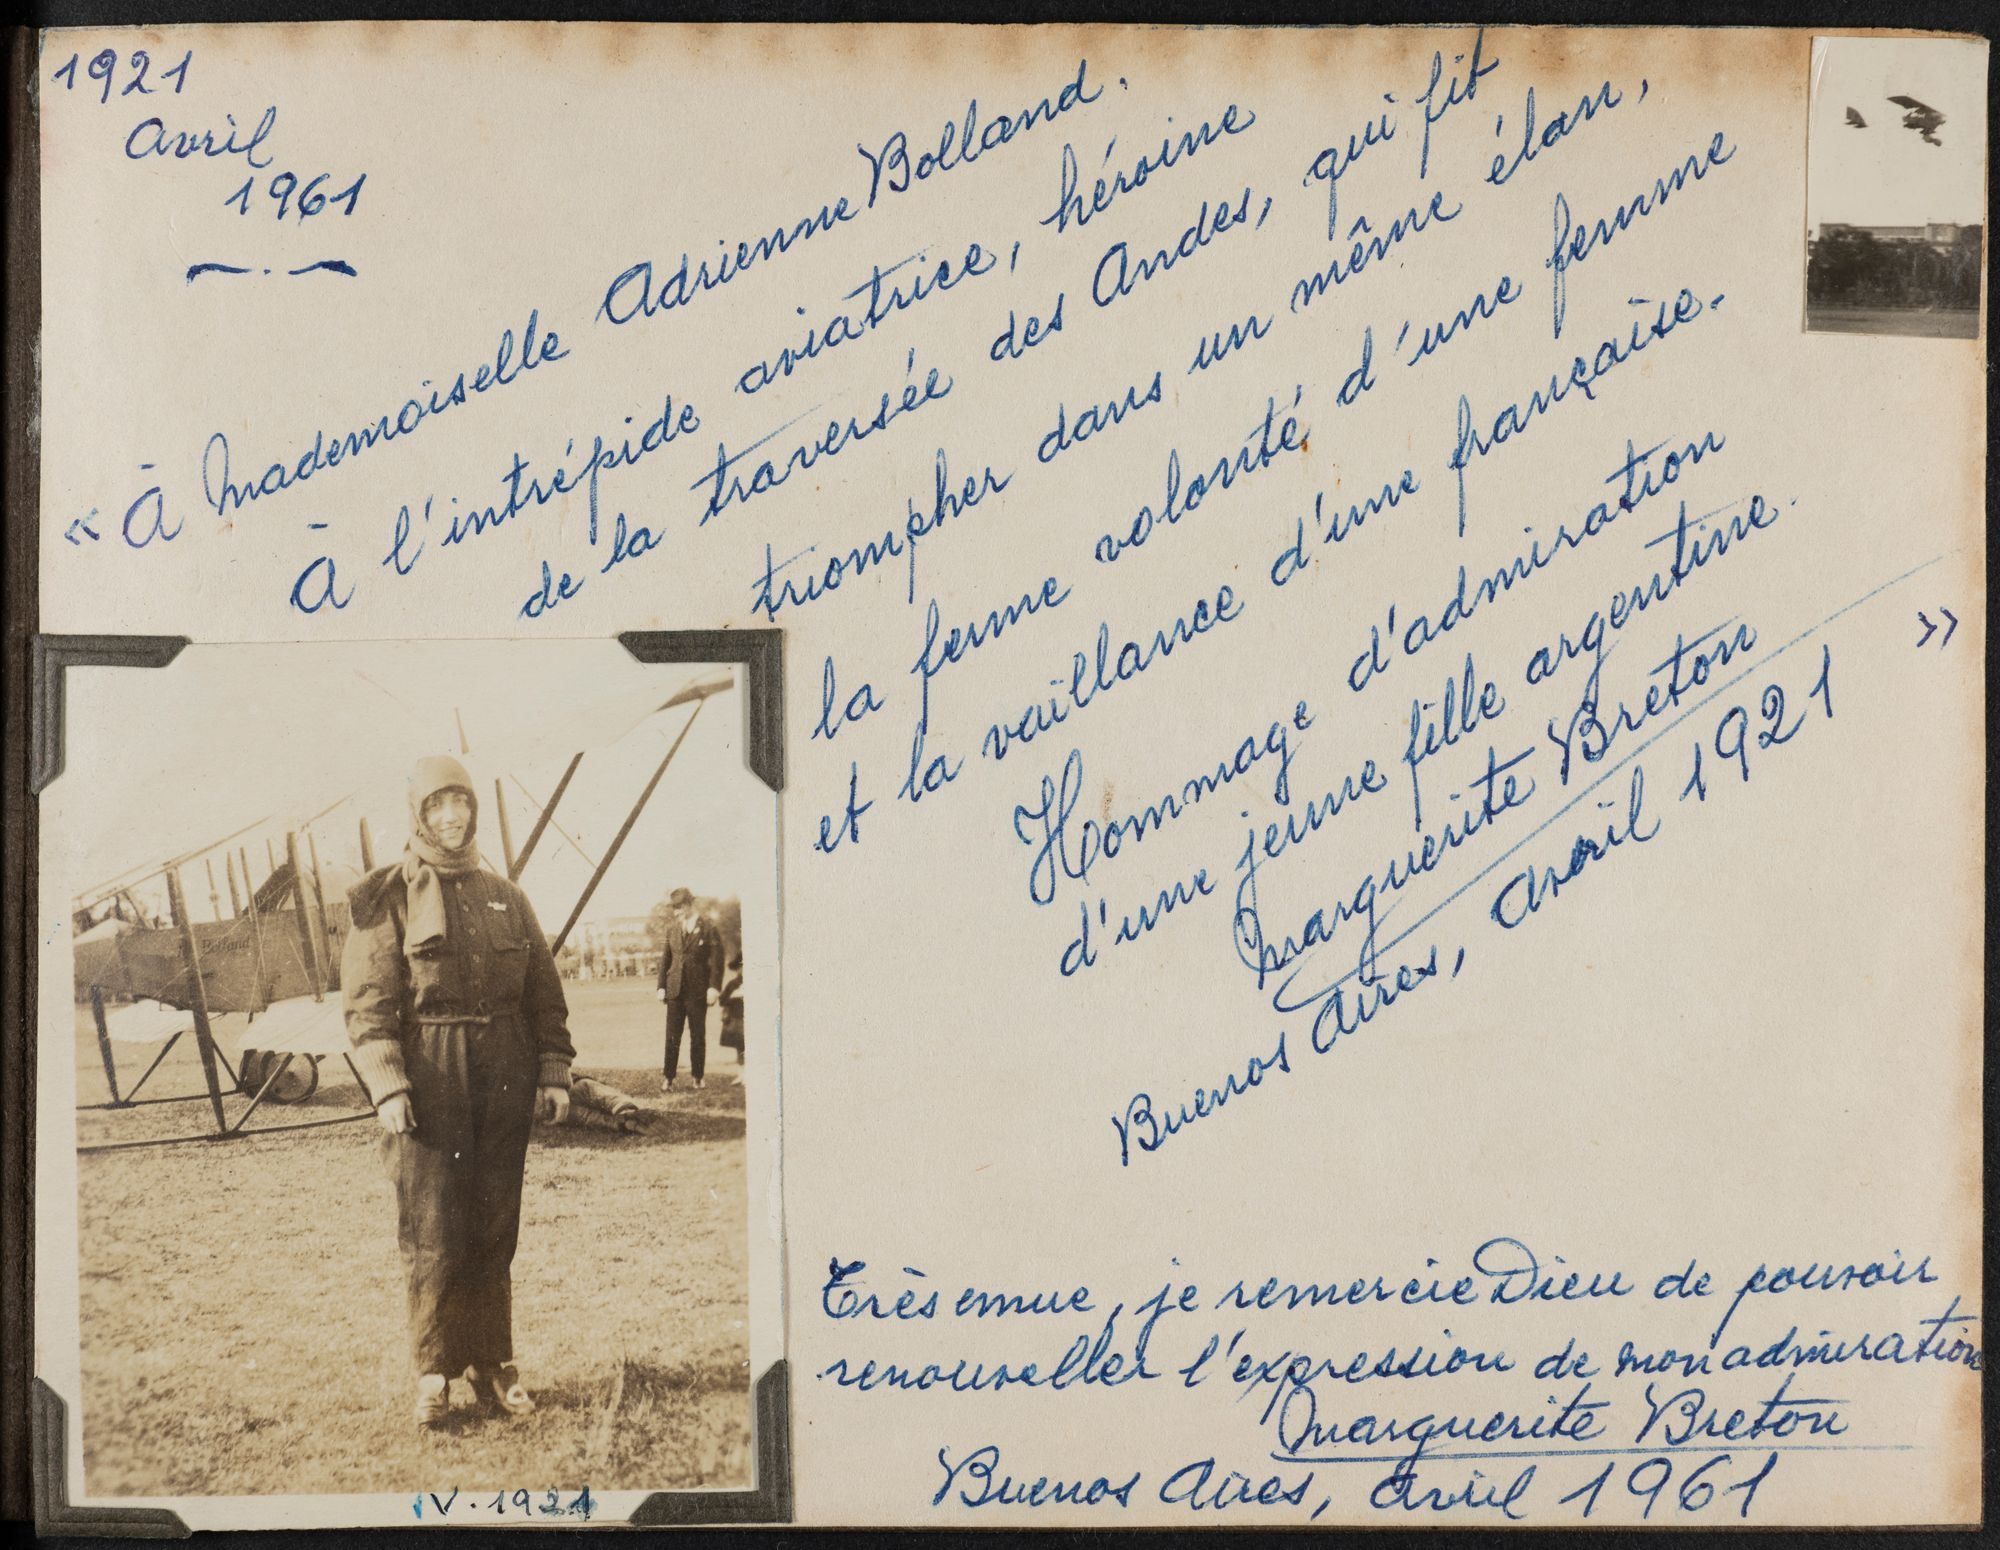 1921
Avril
1961
« À Mademoiselle Adrienne Bolland.
À l'intrépide aviatrice, héroïne
de la traversée des Andes, qui fit
triompher dans un même élan,
la ferme volonté d'une femme
et la vaillance d'une française.
Hommage d'admiration
d'une jeune fille argentine.
Marguerite Breton
Buenos Aires, Avril 1921 »
Bolland
IV.1921
Très emue, je remercie Dieu de pouvoir
renouveller l'expression de mon admiration
Marguerite Breton
Buenos Aires, Avril 1961